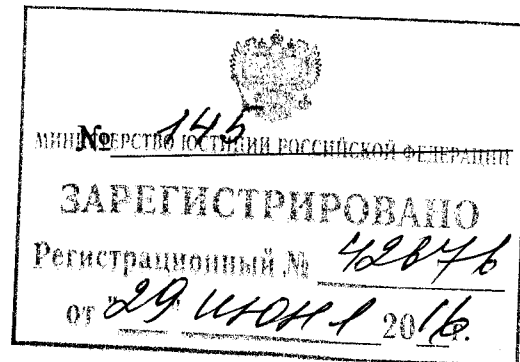 № 145
МИНИСТЕРСТВО ЮСТИЦИИ РОССИЙСКОЙ ФЕДЕРАЦИИ
ЗАРЕГИСТРИРОВАНО
Регистрационный № 42876
от "29" июня 2016г.